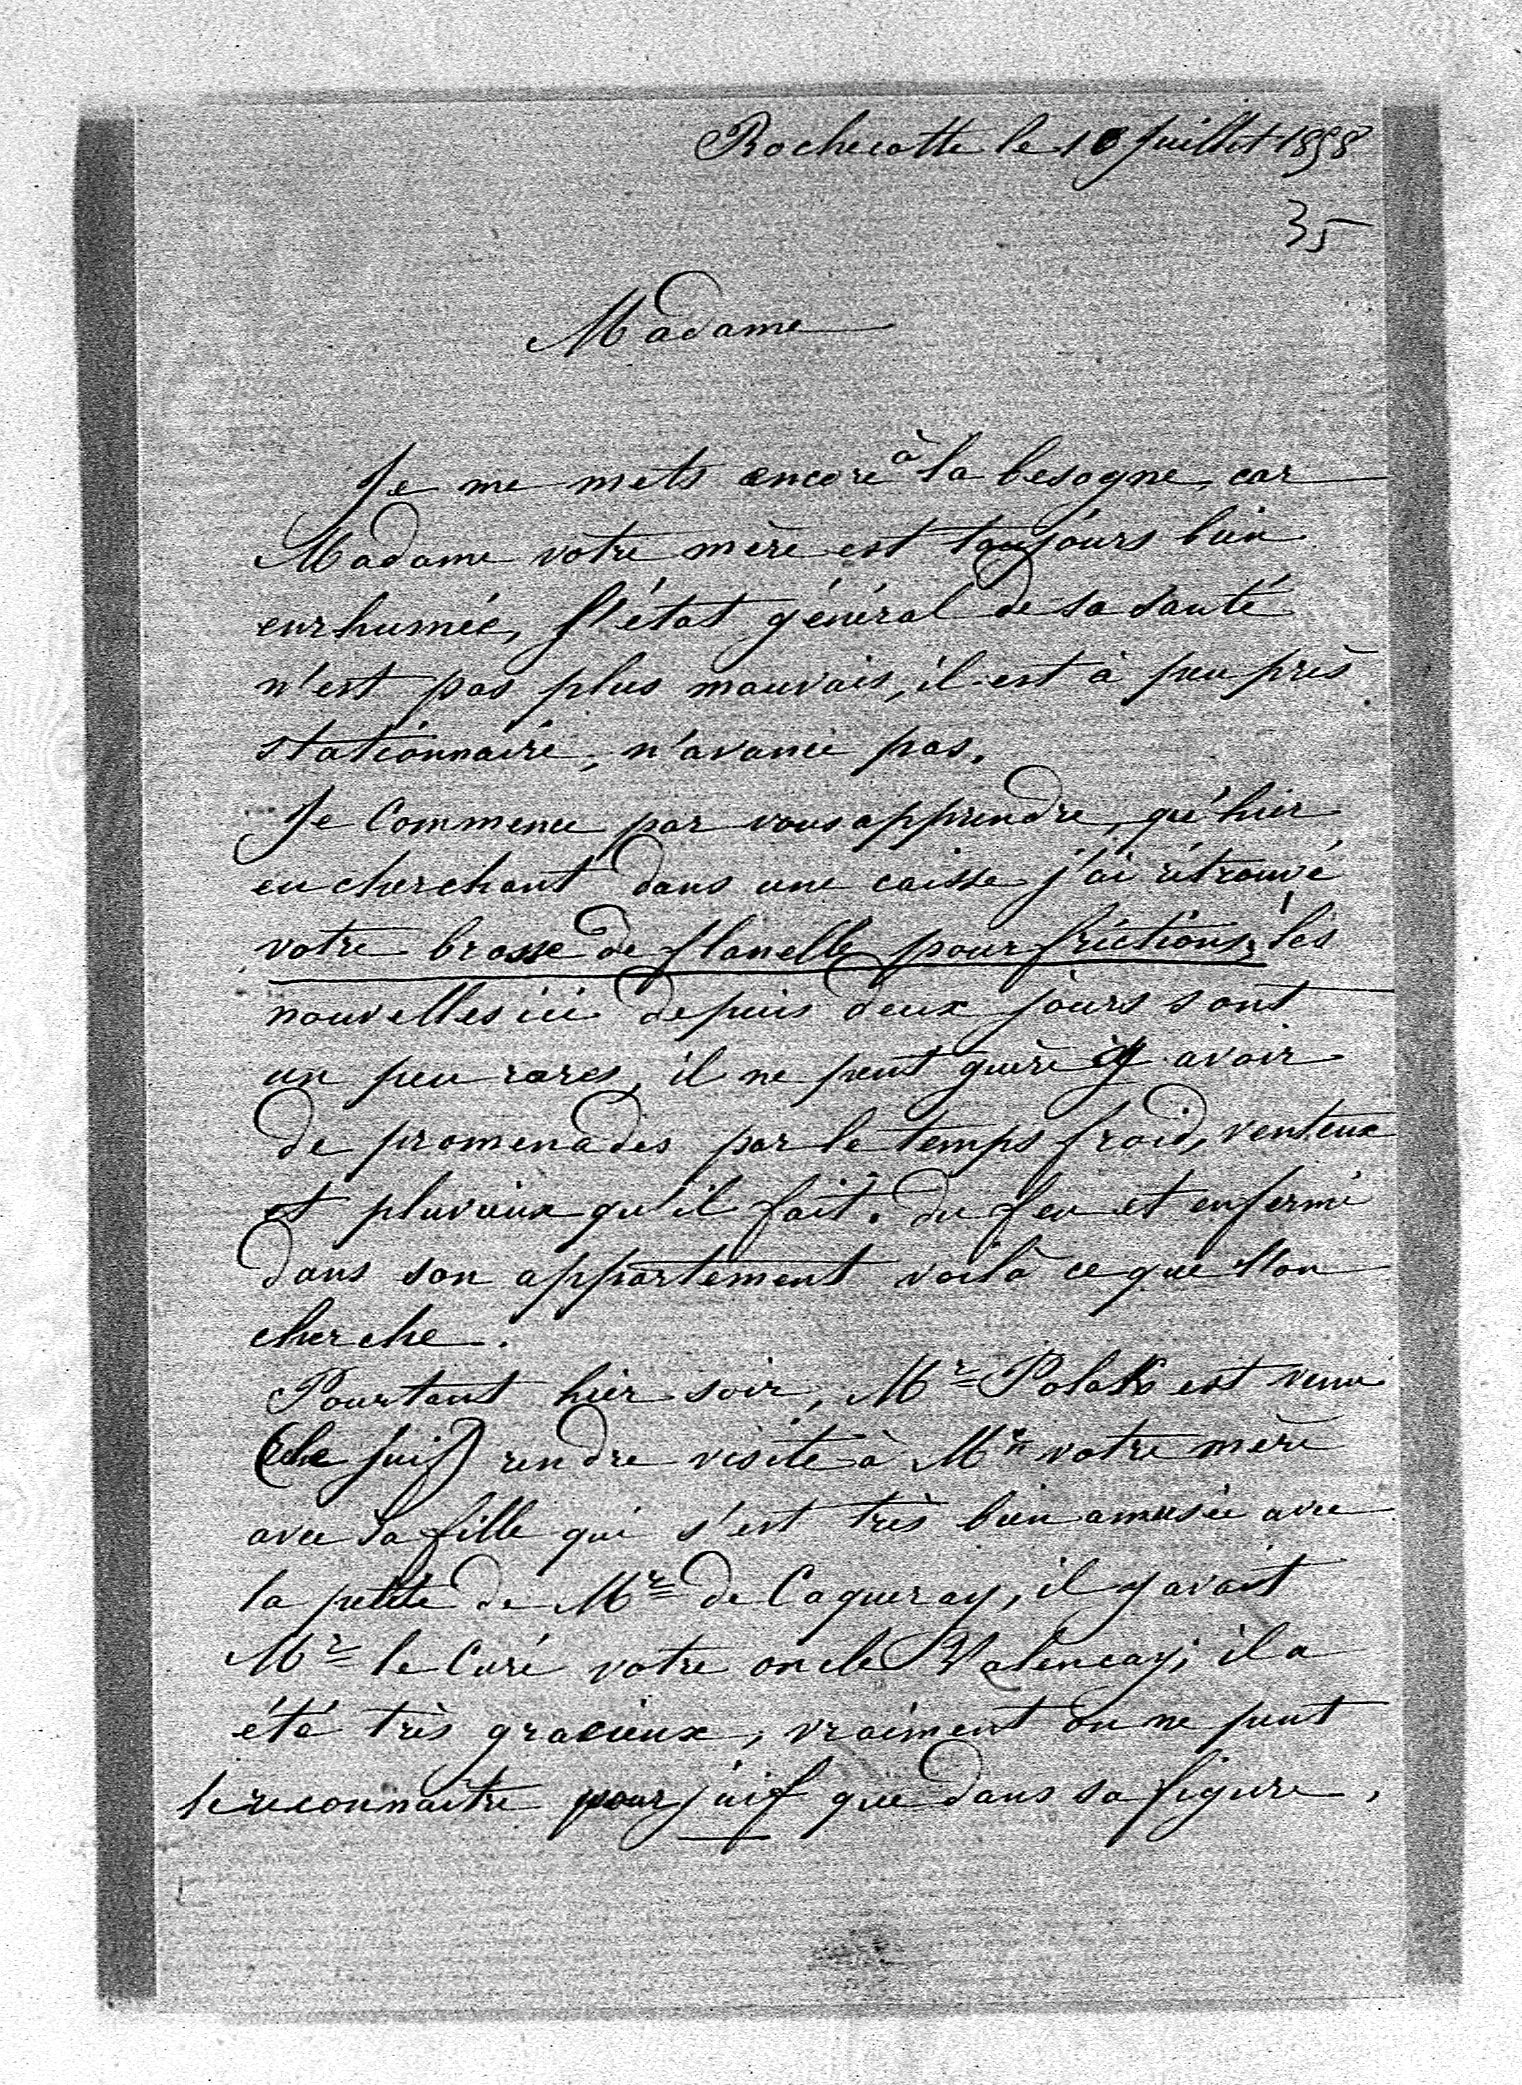 Rochecotte le 10 Juillet 1858
35
Madame
Je me mets encore à la besogne, car
Madame votre mère est toujours bien
enrhumée, l'état général de sa santé
n'est pas plus mauvais, il est à peu près
stationnaire, n'avance pas.
Je commence par vous apprendre, qu'hier
en cherchant dans une caisse j'ai rétrouvé
votre brosse de flanelle pour frictions, les
nouvelles ici depuis deux jours sont
un peu rares, il ne peut guère y avoir
de promenades par le temps froid, venteux
et pluvieux qu'il fait. du feu et enfermé
dans son appartement voilà ce que l'on
cherche.
Pourtant hier soir, Mr Polaks est venu
(le juif) rendre visite à Me votre mère
avec sa fille qui s'est très bien amusée avec
la petite de Mr de Caqueray, il y avait
Mr le Curé votre oncle Valencay; il a
été très gracieux, vraiment on ne peut
le reconnaitre pour juif que dans sa figure,